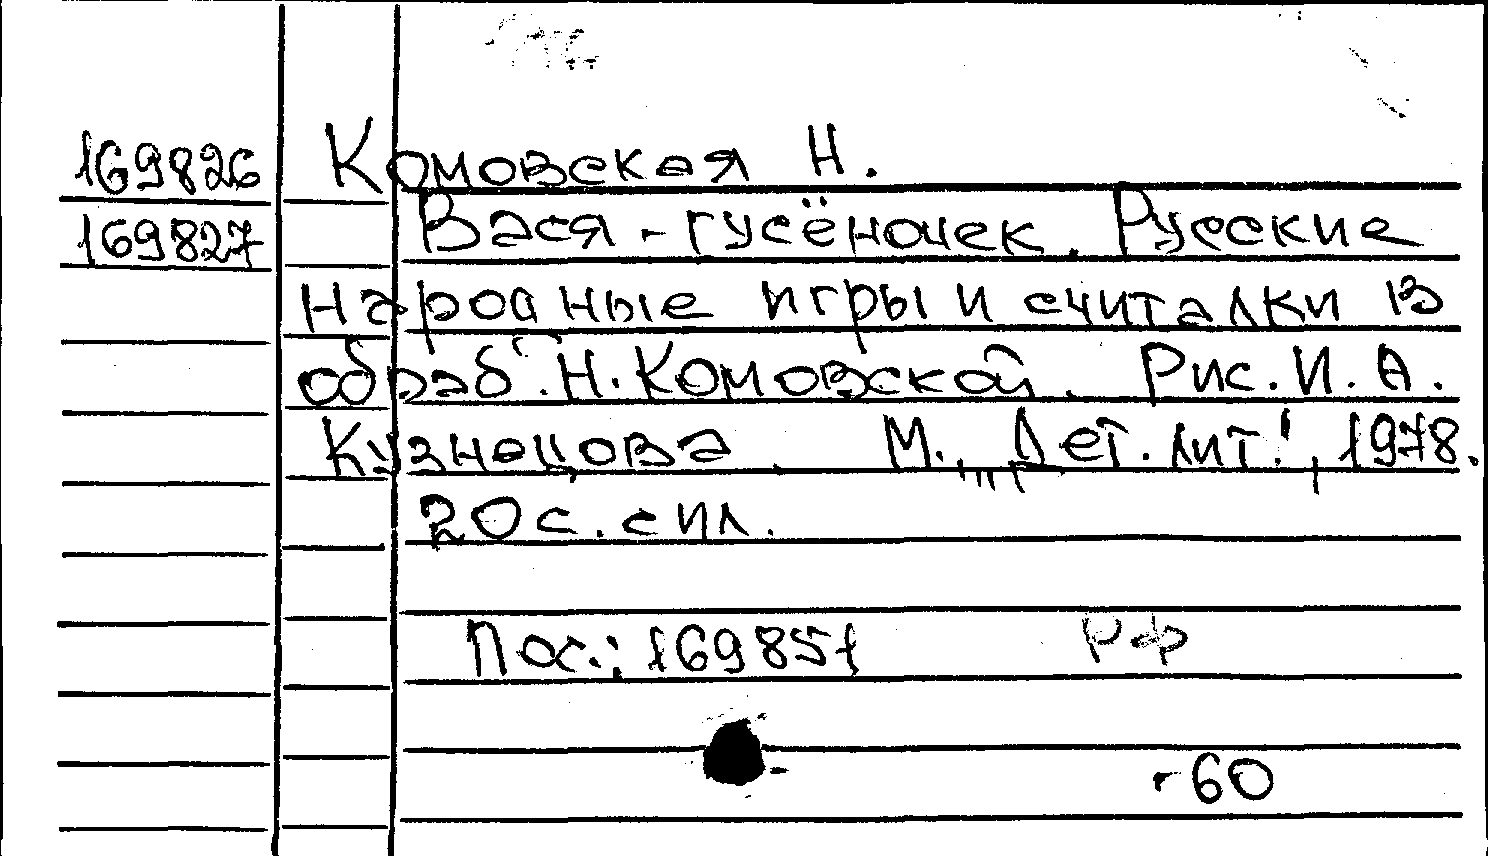 169826 Комовская Н.
169827 Вася-гусёночек. Русские
народные игры и считалки в
обраб. Н. Комовской. Рис. И. А.
Кузнецова. М., „Дет. лит“, 1978.
20 с. с ил.
Пос.: 169851 РФ
-60